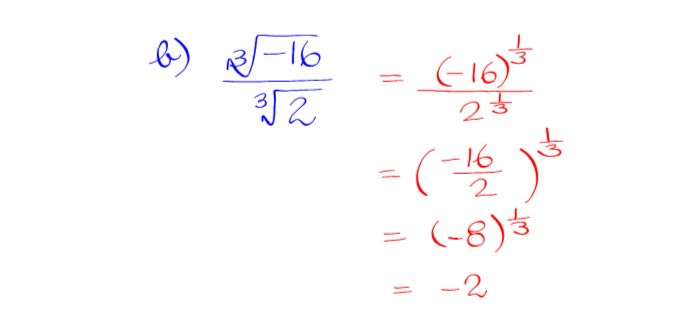 b) ∛-16 / ∛2 = (-16)^(1/3) / 2^(1/3)
= (-16/2)^(1/3)
= (-8)^(1/3)
= -2